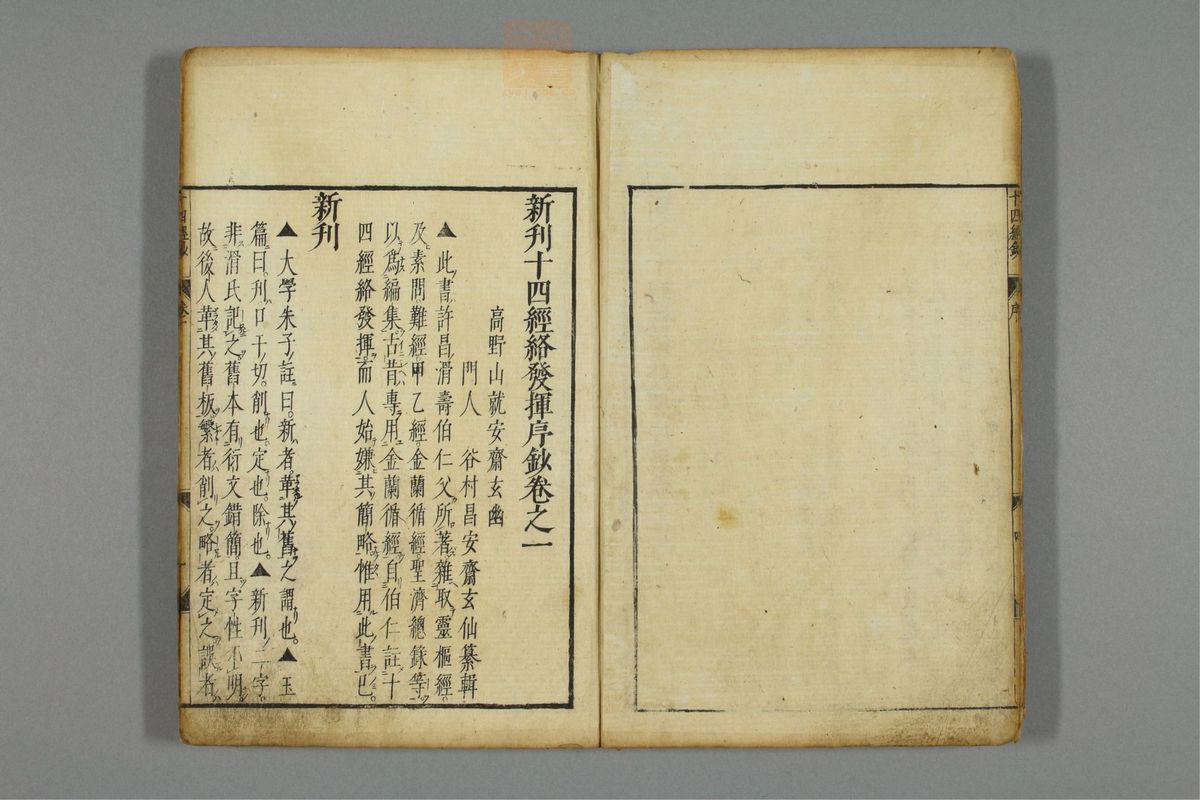 十四經鈔
序
四
新刊十四經絡發揮序鈔卷之一
高野山就安齋玄幽
門人　谷村昌安齋玄仙纂輯
▲此書許昌滑壽伯仁父所著雜取靈樞經
及素問難經甲乙經金蘭循經聖濟總錄等
以爲編集古昔專用金蘭循經自伯仁註十
四經絡發揮而人始嫌其簡略惟用此書已
新刊
▲大學朱子註曰新者革其舊之謂也▲玉
篇曰刋口干切削也定也除也▲新刋二字
非滑氏記之舊本有衍文錯簡且字性不明
故後人革其舊板繁者削之略者定之誤者